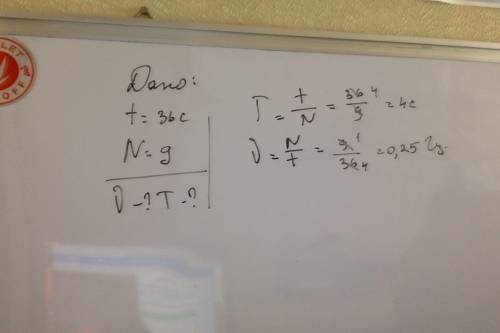 Дано:
t = 36 c
N = 9
ν - ? T - ?
T = t/N = 36 4/9 = 4c
ν = N/t = 9 1/36 4 = 0,25 Гц.
LET
OFF